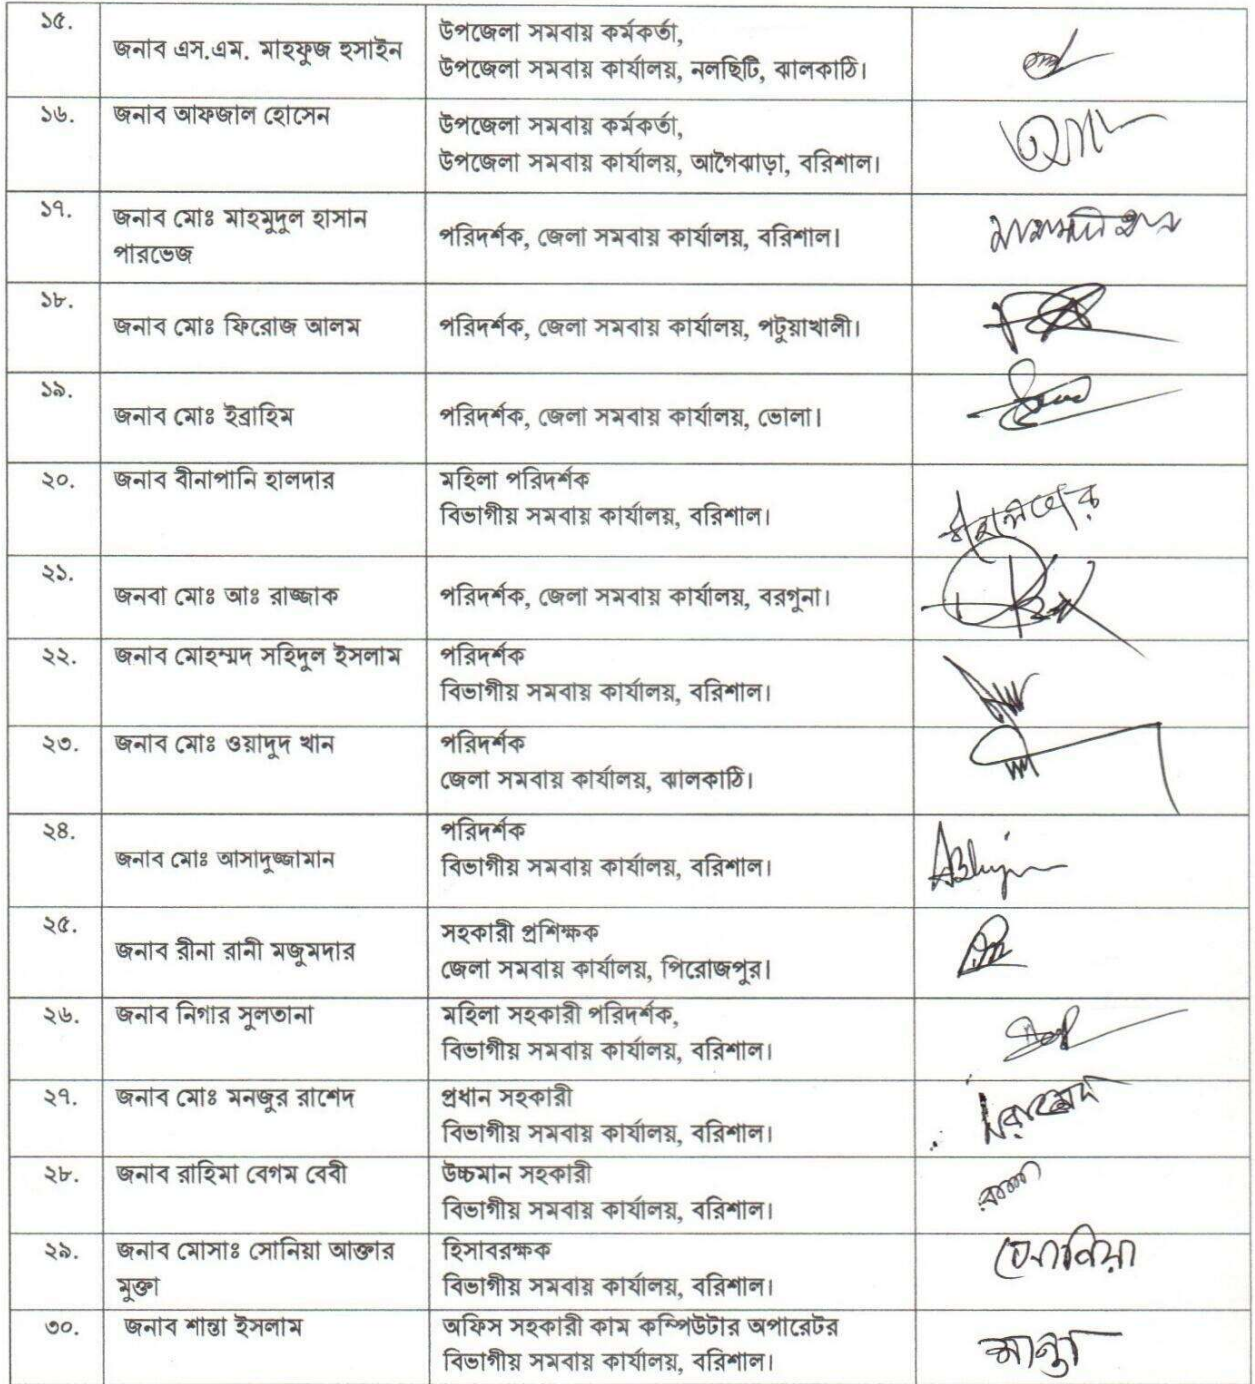 ১৫.
জনাব এস.এম. মাহফুজ হুসাইন
উপজেলা সমবায় কর্মকর্তা,
উপজেলা সমবায় কার্যালয়, নলছিটি, ঝালকাঠি।
১৬.
জনাব আফজাল হোসেন
উপজেলা সমবায় কর্মকর্তা,
উপজেলা সমবায় কার্যালয়, আগৈঝাড়া, বরিশাল।
১৭.
জনাব মোঃ মাহমুদুল হাসান
পারভেজ
পরিদর্শক, জেলা সমবায় কার্যালয়, বরিশাল।
১৮.
জনাব মোঃ ফিরোজ আলম
পরিদর্শক, জেলা সমবায় কার্যালয়, পটুয়াখালী।
১৯.
জনাব মোঃ ইব্রাহিম
পরিদর্শক, জেলা সমবায় কার্যালয়, ভোলা।
২০.
জনাব বীনাপানি হালদার
মহিলা পরিদর্শক
বিভাগীয় সমবায় কার্যালয়, বরিশাল।
২১.
জনবা মোঃ আঃ রাজ্জাক
পরিদর্শক, জেলা সমবায় কার্যালয়, বরগুনা।
২২.
জনাব মোহম্মদ সহিদুল ইসলাম
পরিদর্শক
বিভাগীয় সমবায় কার্যালয়, বরিশাল।
২৩.
জনাব মোঃ ওয়াদুদ খান
পরিদর্শক
জেলা সমবায় কার্যালয়, ঝালকাঠি।
২৪.
জনাব মোঃ আসাদুজ্জামান
পরিদর্শক
বিভাগীয় সমবায় কার্যালয়, বরিশাল।
২৫.
জনাব রীনা রানী মজুমদার
সহকারী প্রশিক্ষক
জেলা সমবায় কার্যালয়, পিরোজপুর।
২৬.
জনাব নিগার সুলতানা
মহিলা সহকারী পরিদর্শক,
বিভাগীয় সমবায় কার্যালয়, বরিশাল।
২৭.
জনাব মোঃ মনজুর রাশেদ
প্রধান সহকারী
বিভাগীয় সমবায় কার্যালয়, বরিশাল।
২৮.
জনাব রাহিমা বেগম বেবী
উচ্চমান সহকারী
বিভাগীয় সমবায় কার্যালয়, বরিশাল।
২৯.
জনাব মোসাঃ সোনিয়া আক্তার
মুক্তা
হিসাবরক্ষক
বিভাগীয় সমবায় কার্যালয়, বরিশাল।
সোনিয়া
৩০.
জনাব শান্তা ইসলাম
অফিস সহকারী কাম কম্পিউটার অপারেটর
বিভাগীয় সমবায় কার্যালয়, বরিশাল।
শান্তা